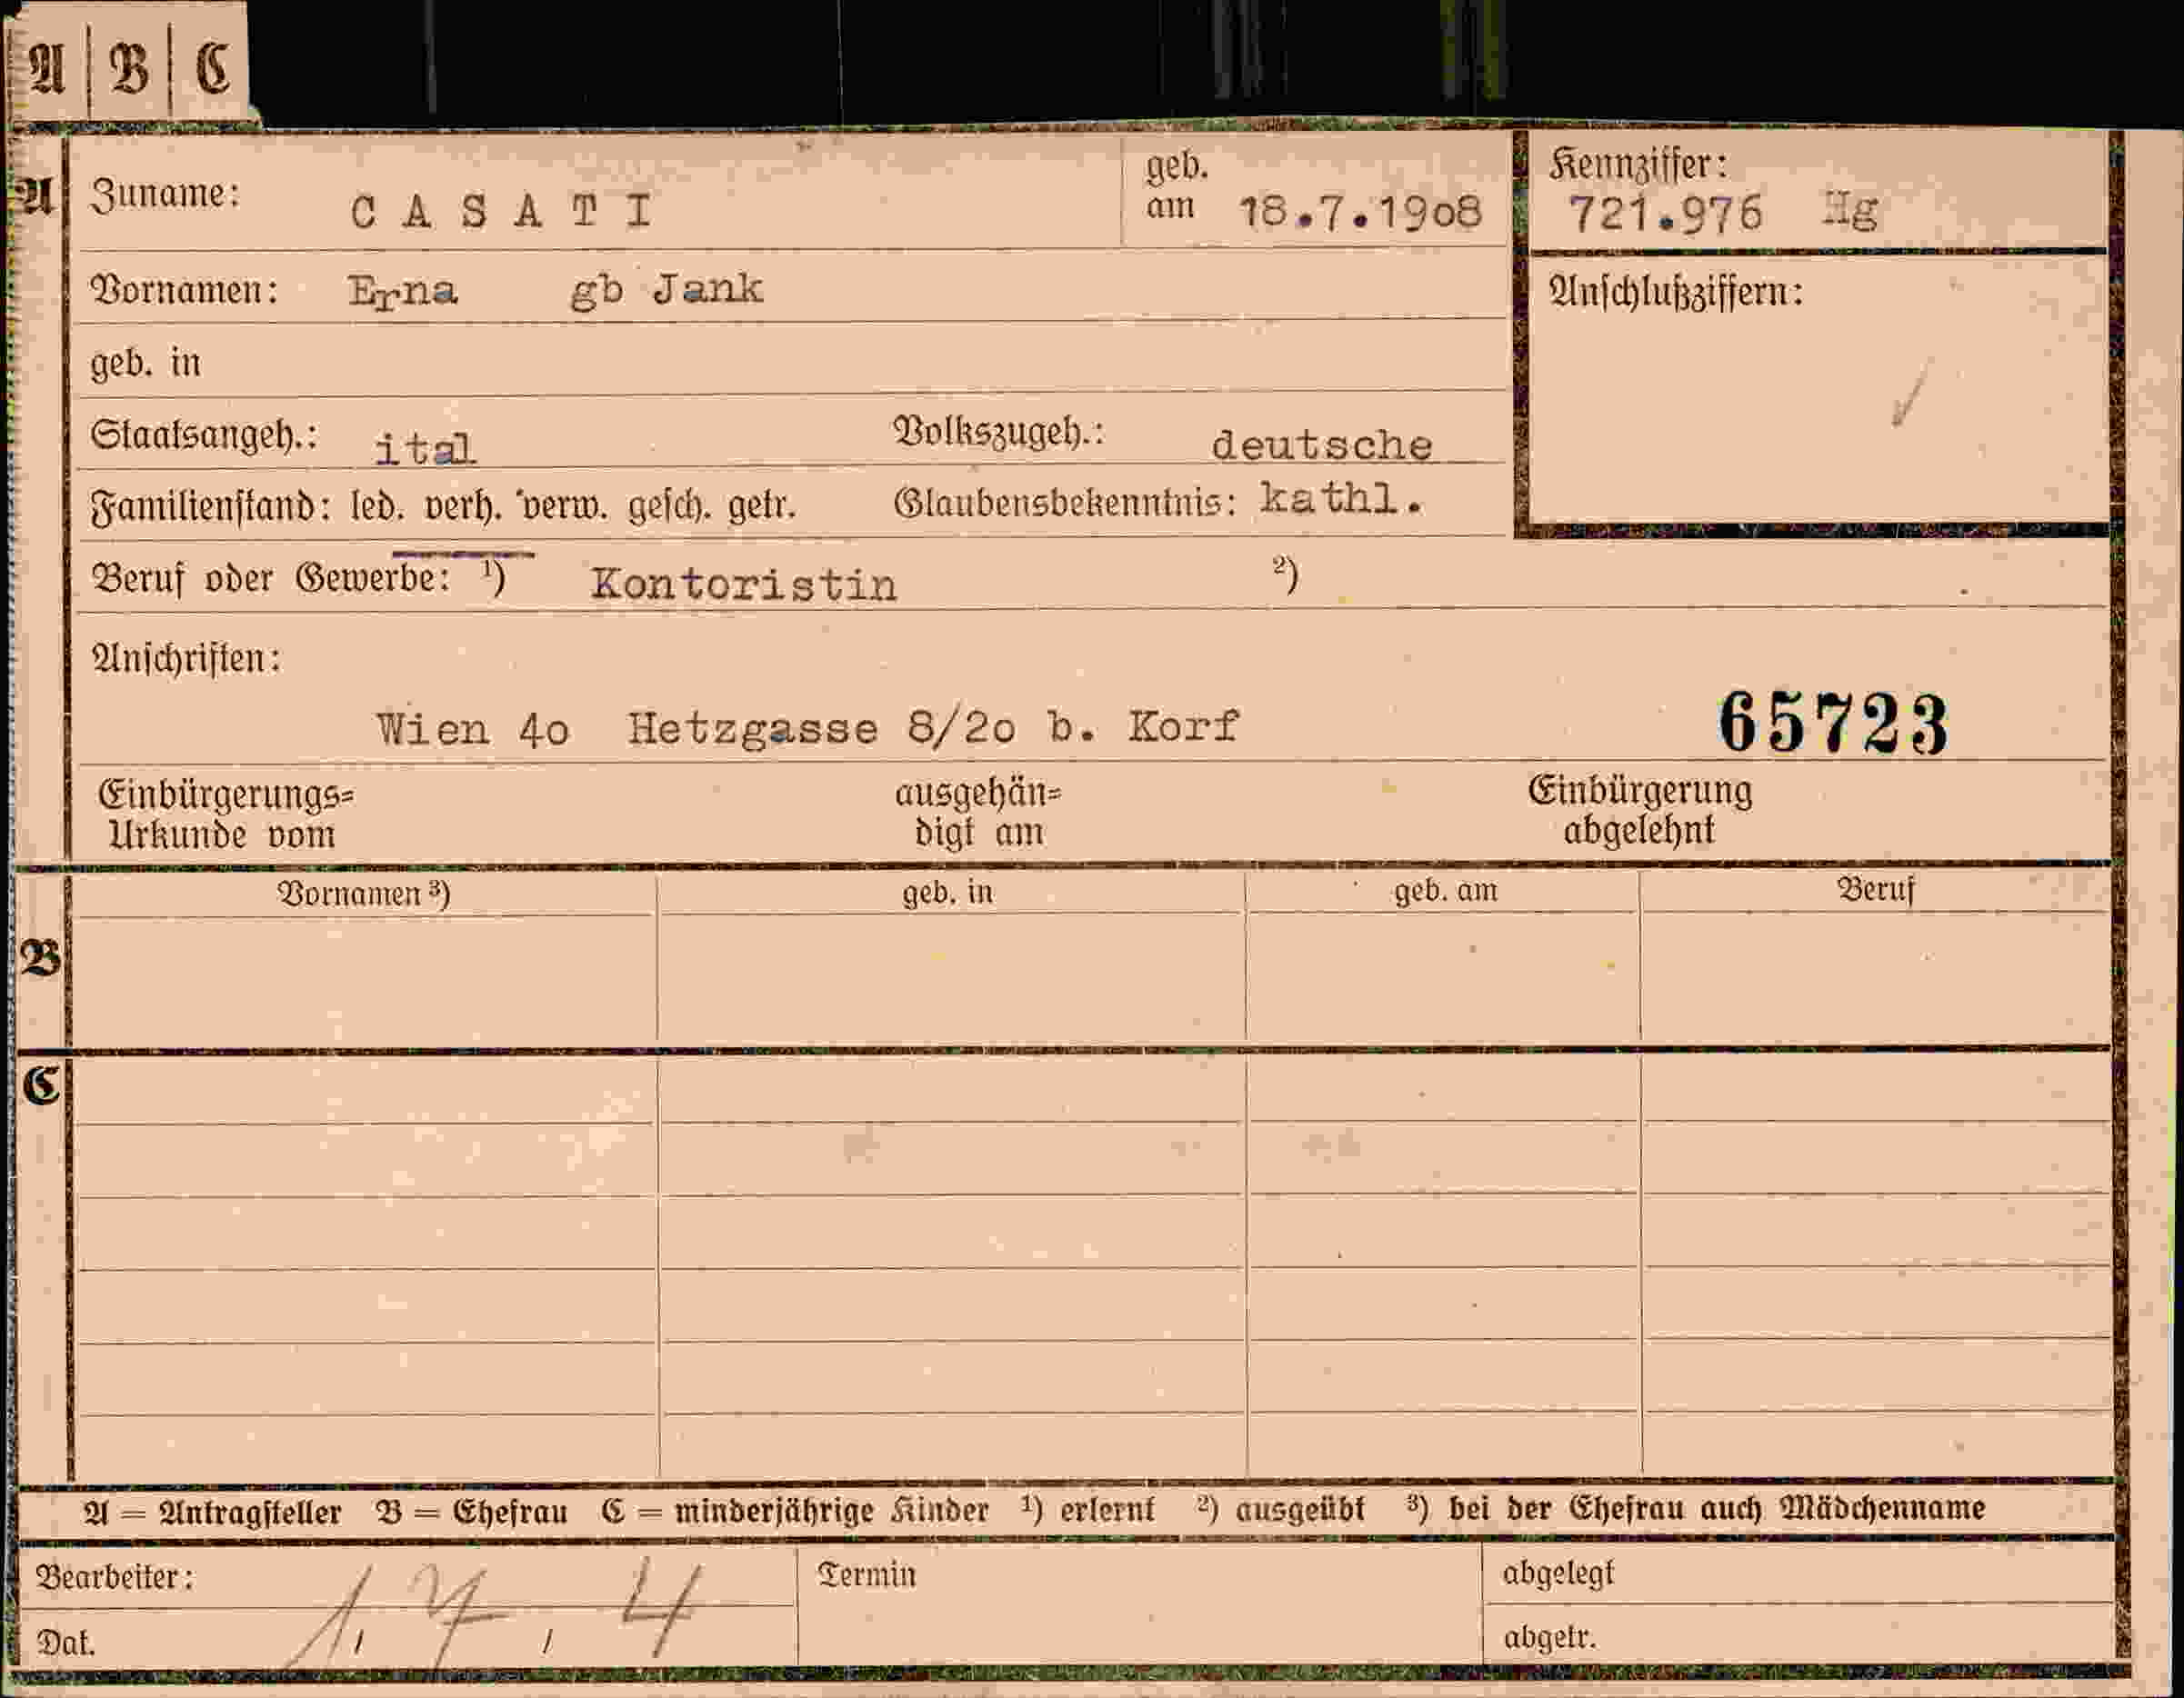 A | B | C
A Zuname: CASATI geb. am 18.7.1908 Kennziffer: 721.976 Hg
Vornamen: Erna gb Jank Anschlußziffern:
geb. in
Staatsangeh.: ital Volkszugeh.: deutsche
Familienstand: led. verh. verw. gesch. getr. Glaubensbekenntnis: kathl.
Beruf oder Gewerbe: ¹) Kontoristin ²)
Anschriften:
Wien 40 Hetzgasse 8/20 b. Korf 65723
Einbürgerungs= Urkunde vom ausgehän= digt am Einbürgerung abgelehnt
Vornamen ³) geb. in geb. am Beruf
B
C
A = Antragsteller B = Ehefrau C = minderjährige Kinder ¹) erlernt ²) ausgeübt ³) bei der Ehefrau auch Mädchenname
Bearbeiter: Termin abgelegt
Dat. 1, 7, 4 abgetr.